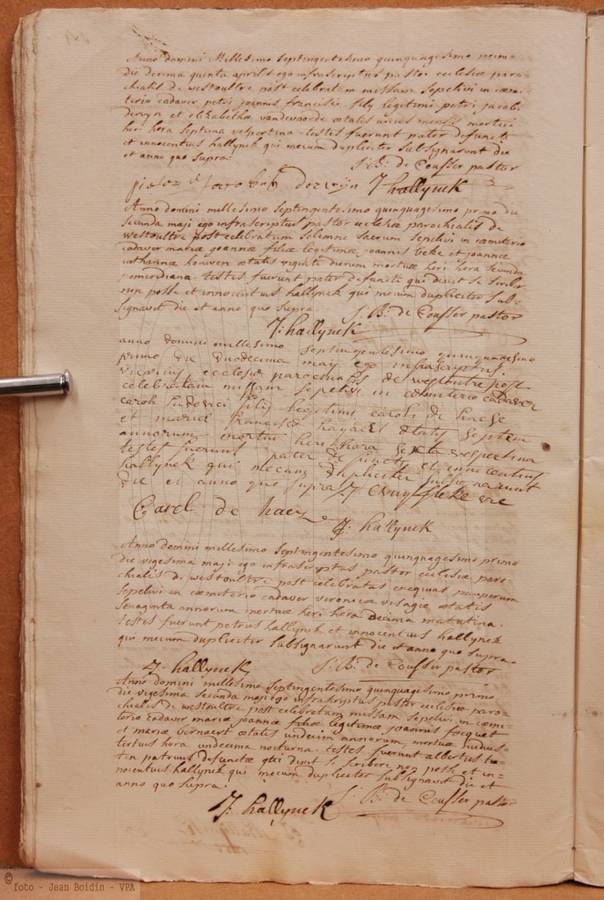 Anno domini Millesimo septingentesimo quinquagesimo primo
die decima quinta aprilis ego infrascriptus pastor ecclesiæ paro=
chialis de westoultre post celebratam missam sepelivi in cœmi=
terio cadaver petri joannis francisci filij legitimi petri jacobi
derijn et elizabetha vandewoorde ætatis unius mensis mortui
heri hora septima vespertina testes fuerunt pater defuncti
et innocentius hallijnck qui mecum dupliciter subsignarunt die
et anno quo supra.
J: B: de Cousser pastor
pieter jacobus derrijn J: hallijnck
Anno domini millesimo septingentesimo quinquagesimo primo die
secunda maji ego infrascriptus pastor ecclesiæ parochialis de
westoultre post celebratum solemne sacrum sepelivi in cœmiterio
cadaver mariæ joannæ filiæ legitimæ joannis beke et joannæ
catharinæ houwen ætatis viginti duorum mortuæ heri hora secunda
pomeridiana. testes fuerunt pater defunctæ qui dixit se scribere
non posse et innocentius hallijnck qui mecum dupliciter sub=
signavit die et anno quo supra.
J: B: de Cousser pastor
J: hallijnck
anno domini millesimo septingentesimo quinquagesimo
primo die duodecima maij ego infrascriptus
vicarius ecclesiæ parochialis de westoutre post
celebratam missam sepelivi in cœmiterio cadaver
caroli ludovici filij legitimi caroli de
et mariæ franciscæ ætatis septem
annorum mortui heri hora sexta vespertina
testes fuerunt pater defuncti et innocentius
hallijnck qui mecum dupliciter subsignarunt
die et anno quo supra J.
Carel de haez
J. hallijnck
Anno domini millesimo septingentesimo quinquagesimo primo
die vigesima maji ego infrascriptus pastor ecclesiæ paro=
chialis de westoultre post celebratas exequias pauperum
sepelivi in cœmiterio cadaver veronicæ visagie ætatis
annorum mortuæ heri hora decima matutina.
testes fuerunt petrus hallijnck et innocentius hallijnck
qui mecum dupliciter subsignarunt die et anno quo supra.
J: hallijnck J: B: de Cousser pastor
Anno domini millesimo septingentesimo quinquagesimo primo
die vigesima secunda maji ego infrascriptus pastor ecclesiæ paro=
chialis de westoultre post celebratam missam sepelivi in cœmi=
terio cadaver mariæ joannæ filiæ legitimæ joannis focquet
et mariæ bernaert ætatis undecim annorum mortuæ nudius=
tertius hora undecima nocturna. testes fuerunt albertus
patruus defunctæ qui dixit se scribere non posse et in=
nocentius hallijnck qui mecum dupliciter subsignavit die et
anno quo supra.
J: B: de Cousser pastor
J: hallijnck
© foto - Jean Boidin - VPA